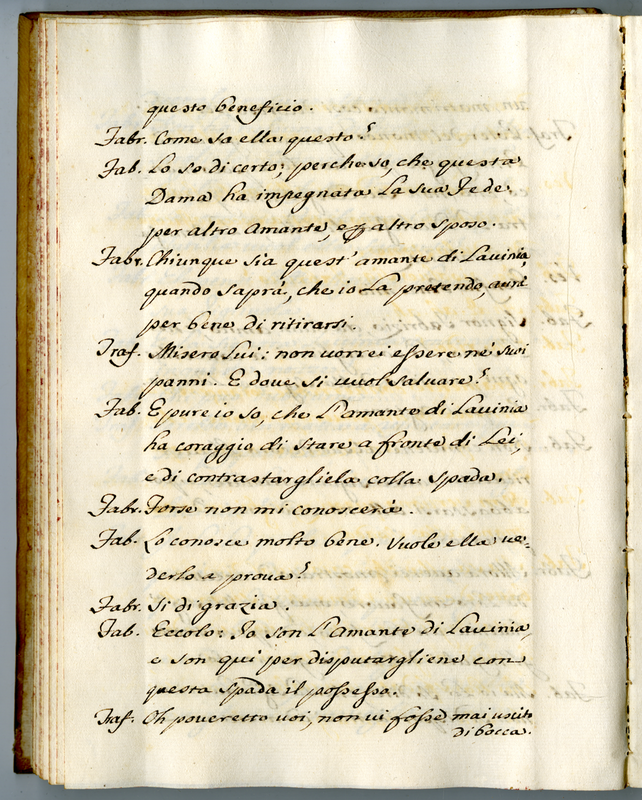 questo beneficio.
Fabr. Come sa ella questo?
Fab. Lo so di certo; perche so, che questa
Dama ha impegnata La sua Fede
per altro amante, e altro sposo.
Fabr. Chiunque sia quest' amante di Lavinia,
quando saprà, che io La pretendo, avrà
per bene di ritirarsi.
Traf. Misero Lui: non vorrei essere ne' suoi
panni. E dove si vuol salvare?
Fab. E pure io so, che L'amante di Lavinia
ha coraggio di stare a fronte di Lei,
e di contrastargliela colla spada.
Fabr. Forse non mi conoscerà.
Fab. Lo conosce molto bene. Vuole ella ve=
derlo a prova?
Fabr. Si di grazia.
Fab. Eccolo: Io son L'Amante di Lavinia,
e son qui per disputargliene con
questa spada il possesso.
Traf. Oh poveretto voi, non vi fosse mai uscito
di bocca.